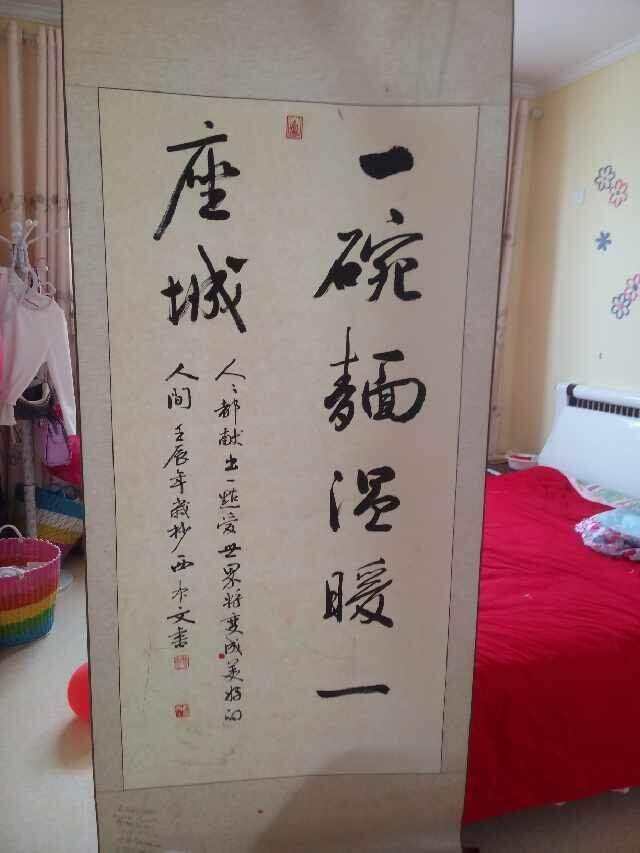 一碗麵温暖一
座城
人々都献出一點愛世界将變成美好的
人間 壬辰年歲杪西木文書